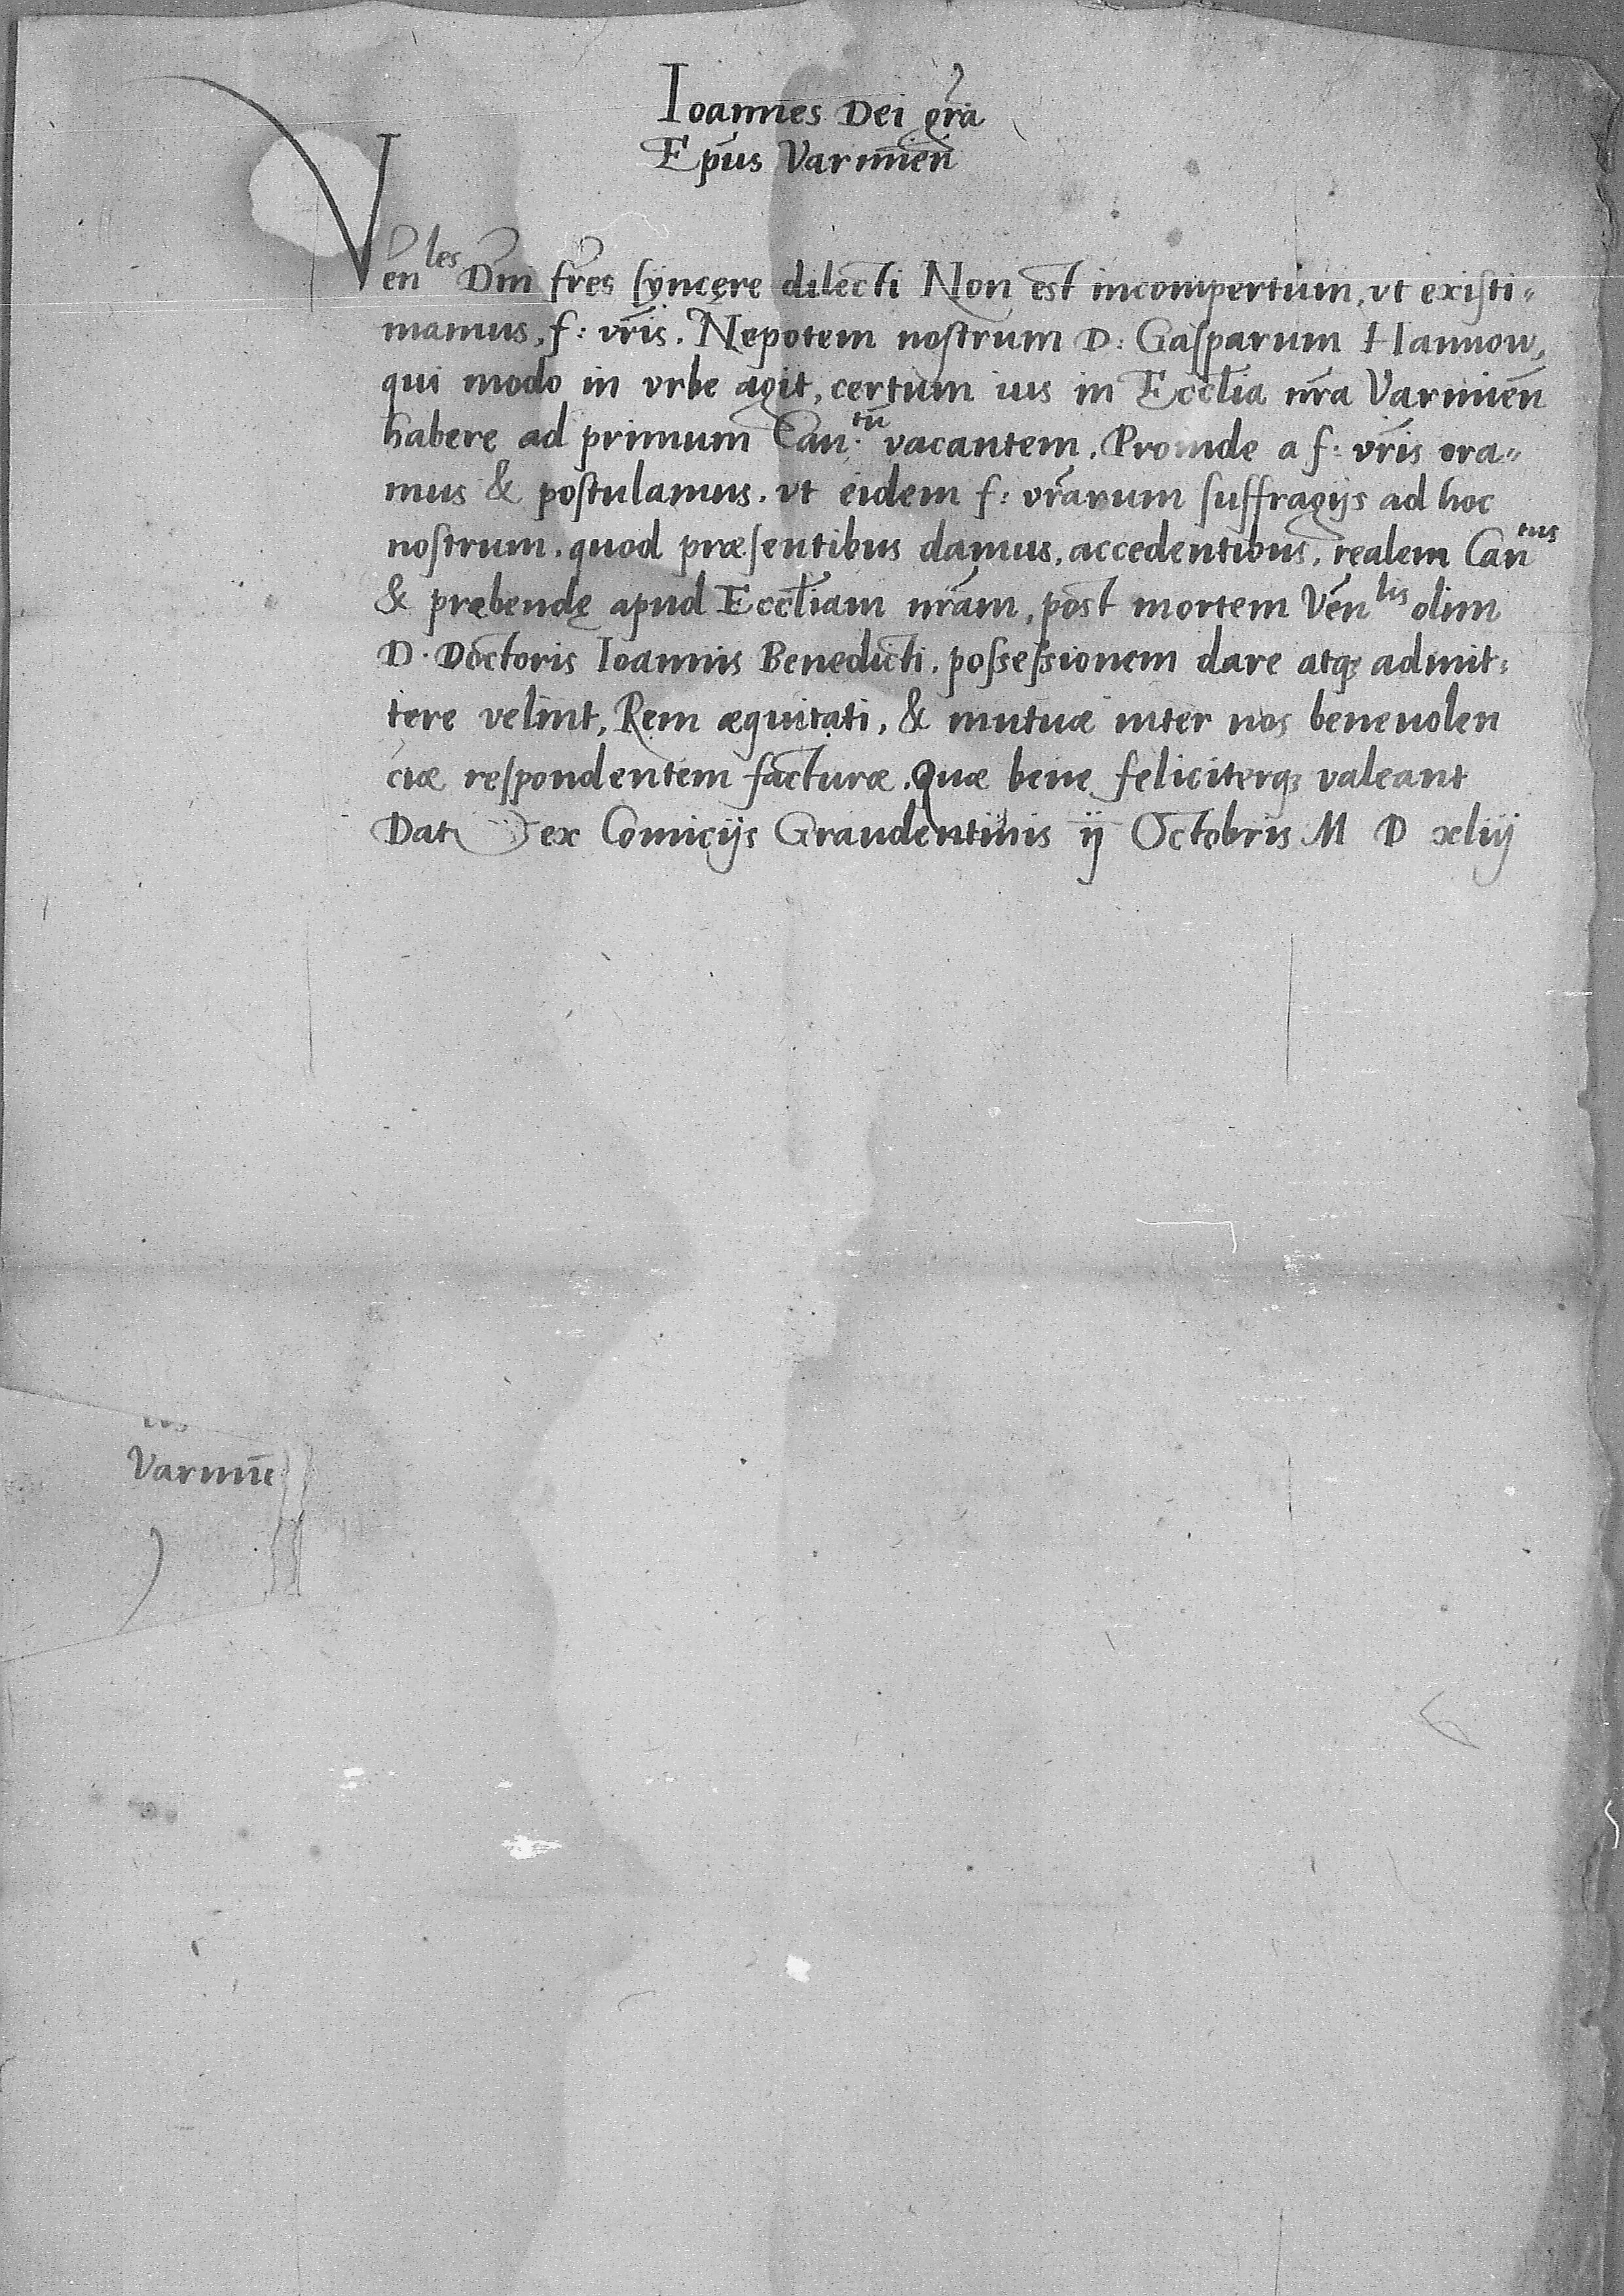 Ioannes Dei gr̃a
Ep̃us Varmień
Ven^les Dñi fr̃es syncęre dilecti Non est incompertum, vt existi⸗
mamus, f: vr̃is. Nepotem nostrum D: Gasparum Hannow,
qui modo in vrbe agit, certum ius in Eccl̃ia nr̃a Varmień
habere ad primum Can.^tũ vacantem. Proinde a f: vr̃is ora⸗
mus & postulamus. vt eidem f: vr̃arum suffragijs ad hoc
nostrum. quod præsentibus damus, accedentibus, realem Can^tus
& prębendę apud Eccl̃iam nr̃am, post mortem Veñ^lis olim
D. Doctoris Ioannis Benedicti. possessionem dare atqꝫ admit⸗
tere velint, Rem æquitati, & mutuæ inter nos beneuolen
ciæ respondentem facturæ. Quæ bene feliciterqꝫ valeant
Dat ex Comicijs Graudentinis ij Octobris M D xliij
Varmie